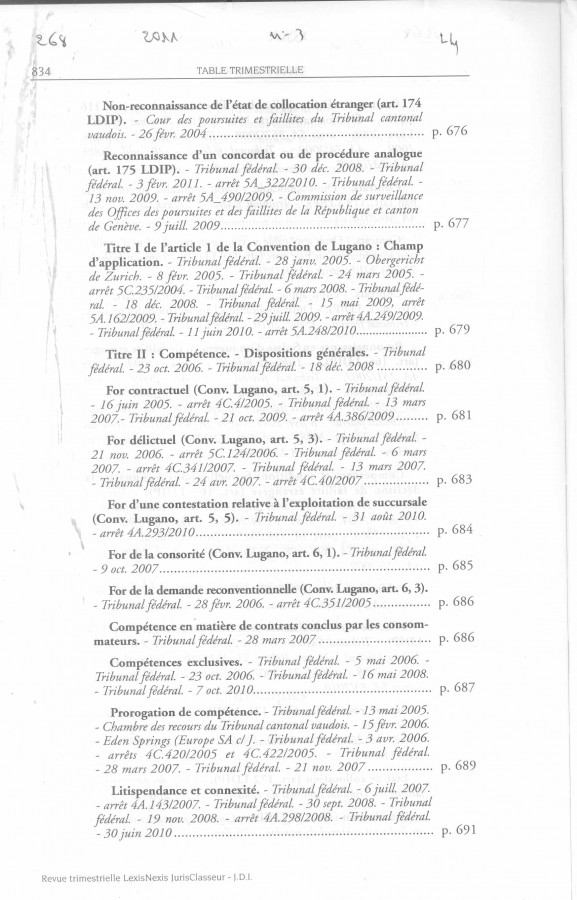 268 2011 n-3 L4
834 TABLE TRIMESTRIELLE
Non-reconnaissance de l'état de collocation étranger (art. 174
LDIP). - Cour des poursuites et faillites du Tribunal cantonal
vaudois. - 26 févr. 2004 ........ p. 676
Reconnaissance d'un concordat ou de procédure analogue
(art. 175 LDIP). - Tribunal fédéral. - 30 déc. 2008. - Tribunal
fédéral. - 3 févr. 2011. - arrêt 5A_322/2010. - Tribunal fédéral. -
13 nov. 2009. - arrêt 5A_490/2009. - Commission de surveillance
des Offices des poursuites et des faillites de la République et canton
de Genève. - 9 juill. 2009........ p. 677
Titre I de l'article 1 de la Convention de Lugano : Champ
d'application. - Tribunal fédéral. - 28 janv. 2005. - Obergericht
de Zurich. - 8 févr. 2005. - Tribunal fédéral. - 24 mars 2005. -
arrêt 5C.235/2004. - Tribunal fédéral. - 6 mars 2008. - Tribunal fédé-
ral. - 18 déc. 2008. - Tribunal fédéral. - 15 mai 2009, arrêt
5A.162/2009. - Tribunal fédéral. - 29 juill. 2009. - arrêt 4A.249/2009.
- Tribunal fédéral. - 11 juin 2010. - arrêt 5A.248/2010........ p. 679
Titre II : Compétence. - Dispositions générales. - Tribunal
fédéral. - 23 oct. 2006. - Tribunal fédéral. - 18 déc. 2008 ........ p. 680
For contractuel (Conv. Lugano, art. 5, 1). - Tribunal fédéral.
- 16 juin 2005. - arrêt 4C.4/2005. - Tribunal fédéral. - 13 mars
2007.- Tribunal fédéral. - 21 oct. 2009. - arrêt 4A.386/2009........ p. 681
For délictuel (Conv. Lugano, art. 5, 3). - Tribunal fédéral. -
21 nov. 2006. - arrêt 5C.124/2006. - Tribunal fédéral. - 6 mars
2007. - arrêt 4C.341/2007. - Tribunal fédéral. - 13 mars 2007.
- Tribunal fédéral. - 24 avr. 2007. - arrêt 4C.40/2007........ p. 683
For d'une contestation relative à l'exploitation de succursale
(Conv. Lugano, art. 5, 5). - Tribunal fédéral. - 31 août 2010.
- arrêt 4A.293/2010........ p. 684
For de la consorité (Conv. Lugano, art. 6, 1). - Tribunal fédéral.
- 9 oct. 2007........ p. 685
For de la demande reconventionnelle (Conv. Lugano, art. 6, 3).
- Tribunal fédéral. - 28 févr. 2006. - arrêt 4C.351/2005........ p. 686
Compétence en matière de contrats conclus par les consom-
mateurs. - Tribunal fédéral. - 28 mars 2007........ p. 686
Compétences exclusives. - Tribunal fédéral. - 5 mai 2006. -
Tribunal fédéral. - 23 oct. 2006. - Tribunal fédéral. - 16 mai 2008.
- Tribunal fédéral. - 7 oct. 2010........ p. 687
Prorogation de compétence. - Tribunal fédéral. - 13 mai 2005.
- Chambre des recours du Tribunal cantonal vaudois. - 15 févr. 2006.
- Eden Springs (Europe SA c/ J. - Tribunal fédéral. - 3 avr. 2006.
- arrêts 4C.420/2005 et 4C.422/2005. - Tribunal fédéral.
- 28 mars 2007. - Tribunal fédéral. - 21 nov. 2007 ........ p. 689
Litispendance et connexité. - Tribunal fédéral. - 6 juill. 2007.
- arrêt 4A.143/2007. - Tribunal fédéral. - 30 sept. 2008. - Tribunal
fédéral. - 19 nov. 2008. - arrêt 4A.298/2008. - Tribunal fédéral.
- 30 juin 2010 ........ p. 691
Revue trimestrielle LexisNexis JurisClasseur - J.D.I.